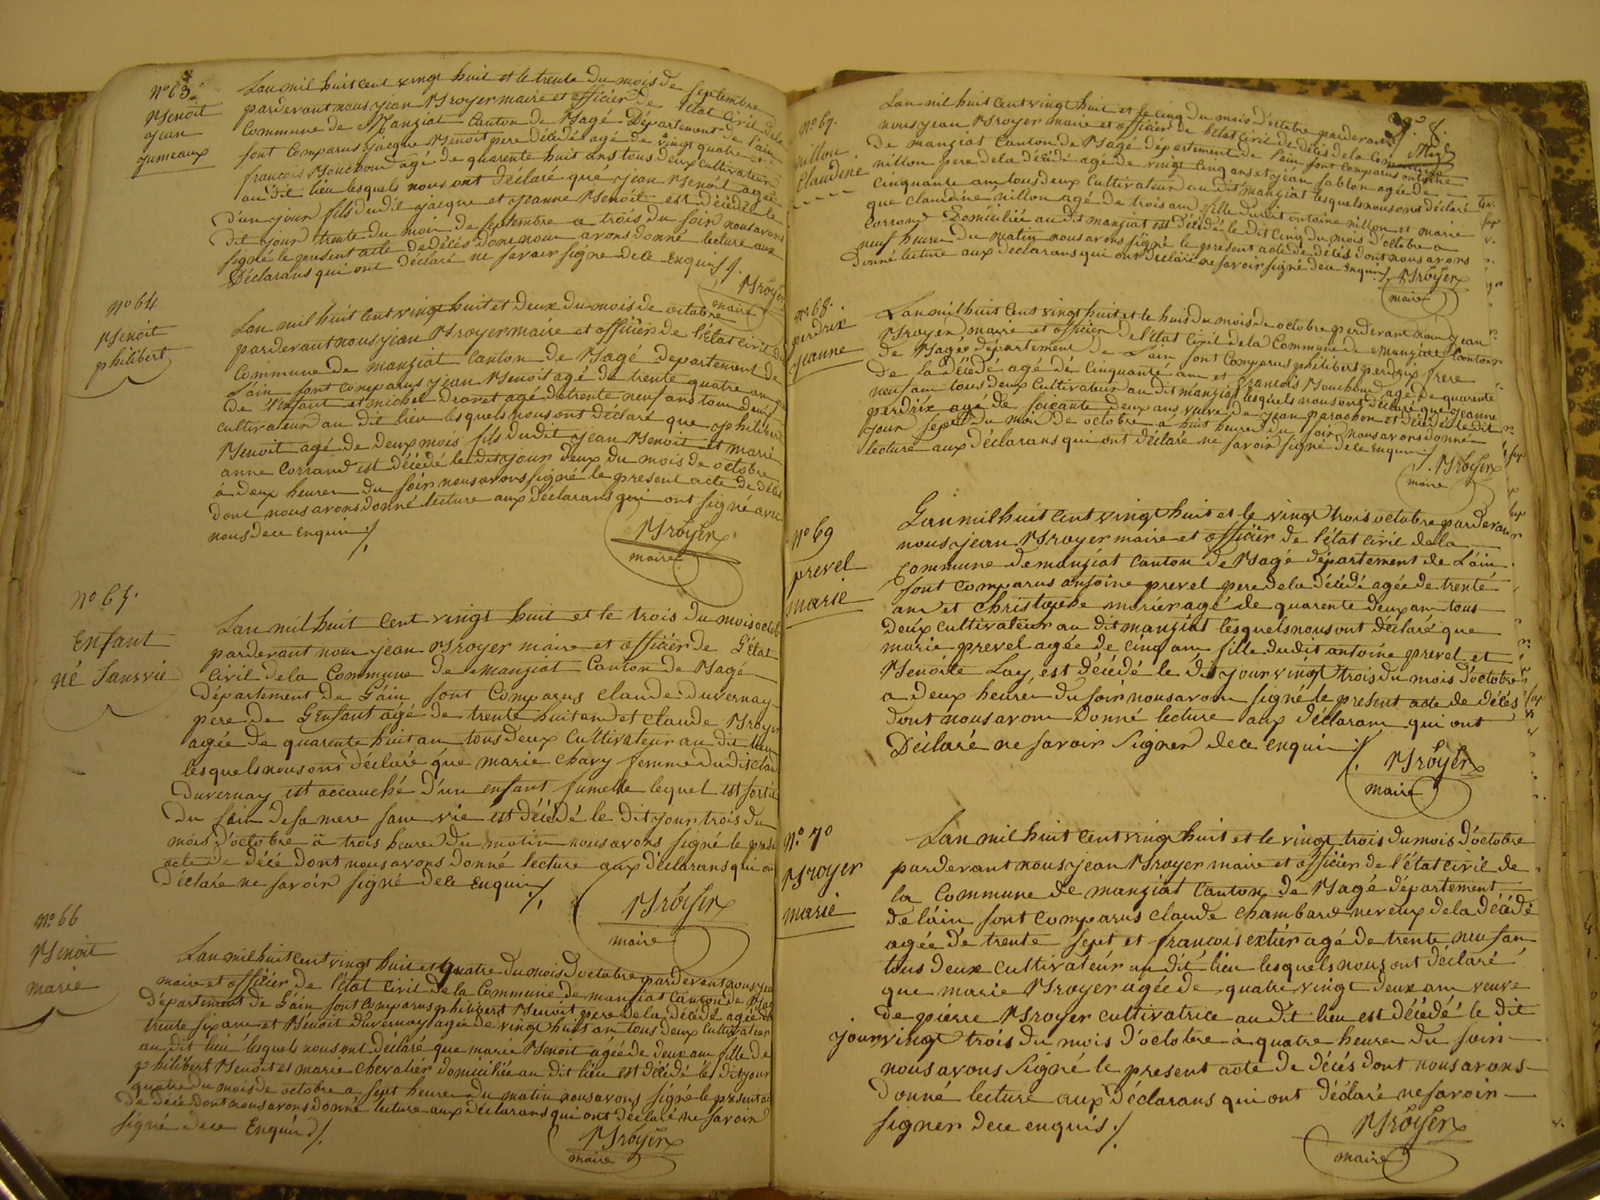 N° 63.
Benoit
jean
jumeaux
Lan mil huit cent vingt huit et le trente du mois de septembre
pardevant nous jean Broyer maire et officier de l'état civil dela
Commune de Manziat Canton de Bagé Département de l'ain
sont Comparus jacque Benoit pere décédé agé de vingt quatre
francois Bouchoux agé de quarente huit ans tous deux cultivateur
au dit lieu lesquels nous ont déclaré que jean Benoit agée
d'un jour fils dudit jacque et jeanne Benoit est décédé le
dit jour trente du mois de septembre a trois du soir nous avons
signé le present acte de décés dont nous avons donné lecture aux
Déclarans qui ont déclaré ne savoir signé de ce Enquis /.
Broyer
maire
N° 64
Benoit
philibert
Lan mil huit cent vingt huit et deux du mois de octobre
pardevant nous jean Broyer maire et officier de l'état civil de
Commune de manziat Canton de Bagé departement de
L'ain sont Comparus jean Benoit agé de trente quatre ans
de l'enfant et michel drovet agé de trente neuf ans tous deux
cultivateur au dit lieu lesquels nous ont déclaré que philibert
Benoit agé de deux mois fils dudit jean Benoit et marie
anne Corrand est décédé le dit jour deux du mois de octobre
à deux heures du soir nous avons signé le present acte de décé
dont nous avons donné lecture aux déclarans qui ont signé avec
nous de ce enquis /.
Broyer
maire
N° 65.
Enfant
né sans vie
Lan mil huit cent vingt huit et le trois du mois octob
pardevant nous jean Broyer maire et officier de L'état
Civil de la Commune de Manziat Canton de Bagé
Département de L'ain sont Comparus claude duvernay
pere de L'Enfant agé de trente huit ans et claude Broyer
agée de quarente huit ans tous deux cultivateur au dit lieu
lesquels nous ont déclaré que marie chavy femme dudit claude
Duvernay est accouché d'un enfant fumelle lequel est sortie
du sein de sa mere sans vie est décédé le dit jour trois du
mois d'octobre à trois heures du matin nous avons signé le prese
acte de décé dont nous avons donné lecture aux déclarans qui on
Déclaré ne savoir signé de ce enquis /.
Broyer
maire
N° 66
Benoit
marie
Lan mil huit cent vingt huit et quatre du mois d'octobre pardevant nous jean
maire et officier de l'état civil de la Commune de manziat Canton de Bagé
département de L'ain sont comparus philibert Benoit pere de la décédé agé de
trente six ans et Benoit Duvernay agée de vingt huit ans tous deux cultivateur
au dit lieu lesquels nous ont déclaré que marie Benoit agée de deux ans fille de
philibert Benoit et marie chevalier domiciliée au dit lieu est décédé le dit jour
quatre du mois de octobre a sept heures du matin nous avons signé le présent ac
de décé dont nous avons donné lecture aux déclarans qui ont déclaré ne savoir
signé de ce Enquis /.
Broyer
maire
N° 67.
nillon
Claudine
Lan mil huit cent vingt huit et le cinq du mois d'octobre pardevant
nous jean Broyer maire et officier de l'état civil de décés de la Commune
de manziat Canton de Bagé département de l'ain sont comparus antoine
nillon pere de la décédé agé de vingt cinq ans et jean sablon agée de
cinquante ans tous deux cultivateur au dit manziat lesquels nous ons déclaré
que claudine nillon agé de trois ans fille dudit antoine nillon et marie
Corrand Domiciliée au dit manziat est décédé le dit cinq du mois d'octobre a
neuf heures du matin nous avons signé le present acte de décés dont nous avons
donné lecture aux déclarans qui ont déclaré ne savoir signé de ce Enquis /. Broyer
maire
N° 68.
perdrix
jeanne
Lan mil huit cent vingt huit et le huit du mois de octobre perdevant nous jean
Broyer maire et officier de l'état civil de la Commune de Manziat Canton
de Bagé département de L'ain sont Comparus philibert perdrix frere
de la décédé agé de cinquante ans et francois Bouchoux agé de quarente
neuf ans tous deux cultivateur au dit manziat lesquels nous ont déclaré que jeanne
perdrix agé de soixante deux ans vuive de jean parachon et décédé le dit
jour sept du mois de octobre a huit heures du soir nous avons donné
lecture aux déclarans qui ont déclaré ne savoir signé de ce enquis /.
Broyer
maire
N° 69
prevel
marie
Lan mil huit cent vingt huit et le vingt trois octobre pardevan
nous jean Broyer maire et officier de l'état civil de la
Commune de manziat canton de Bagé département de L'ain
sont Comparus antoine prevel pere de la décédé agée de trente
ans et Christophe morier agé de quarente deux ans tous
deux cultivateur au dit manziat lesquels nous ont déclaré que
marie prevel agée de cinq ans fille dudit antoine prevel et
Benoite Lay, est décédé le dit jour vingt trois du mois d'octobre
a deux heures du soir nous avons signé le present acte de décés
dont nous avons donné lecture aux déclarans qui ont
Déclaré ne savoir signer de ce enquis /.
Broyer
maire
N° 70
Broyer
marie
Lan mil huit cent vingt huit et le vingt trois du mois d'octobre
pardevant nous jean Broyer maire et officier de l'état civil de
la Commune de manziat Canton de Bagé département
de l'ain sont comparus claude Chambard neveux de la décédé
agée de trente sept et francois extier agé de trente neuf an
tous deux cultivateur au dit lieu lesquels nous ont déclaré
que marie Broyer agée de quatre vingt deux ans veuve
de pierre Broyer cultivatrice au dit lieu est décédé le dit
jour vingt trois du mois d'octobre à quatre heures du soir
nous avons signé le present acte de décés dont nous avons
donné lecture aux déclarans qui ont déclaré ne savoir
signer de ce enquis /.
Broyer
maire